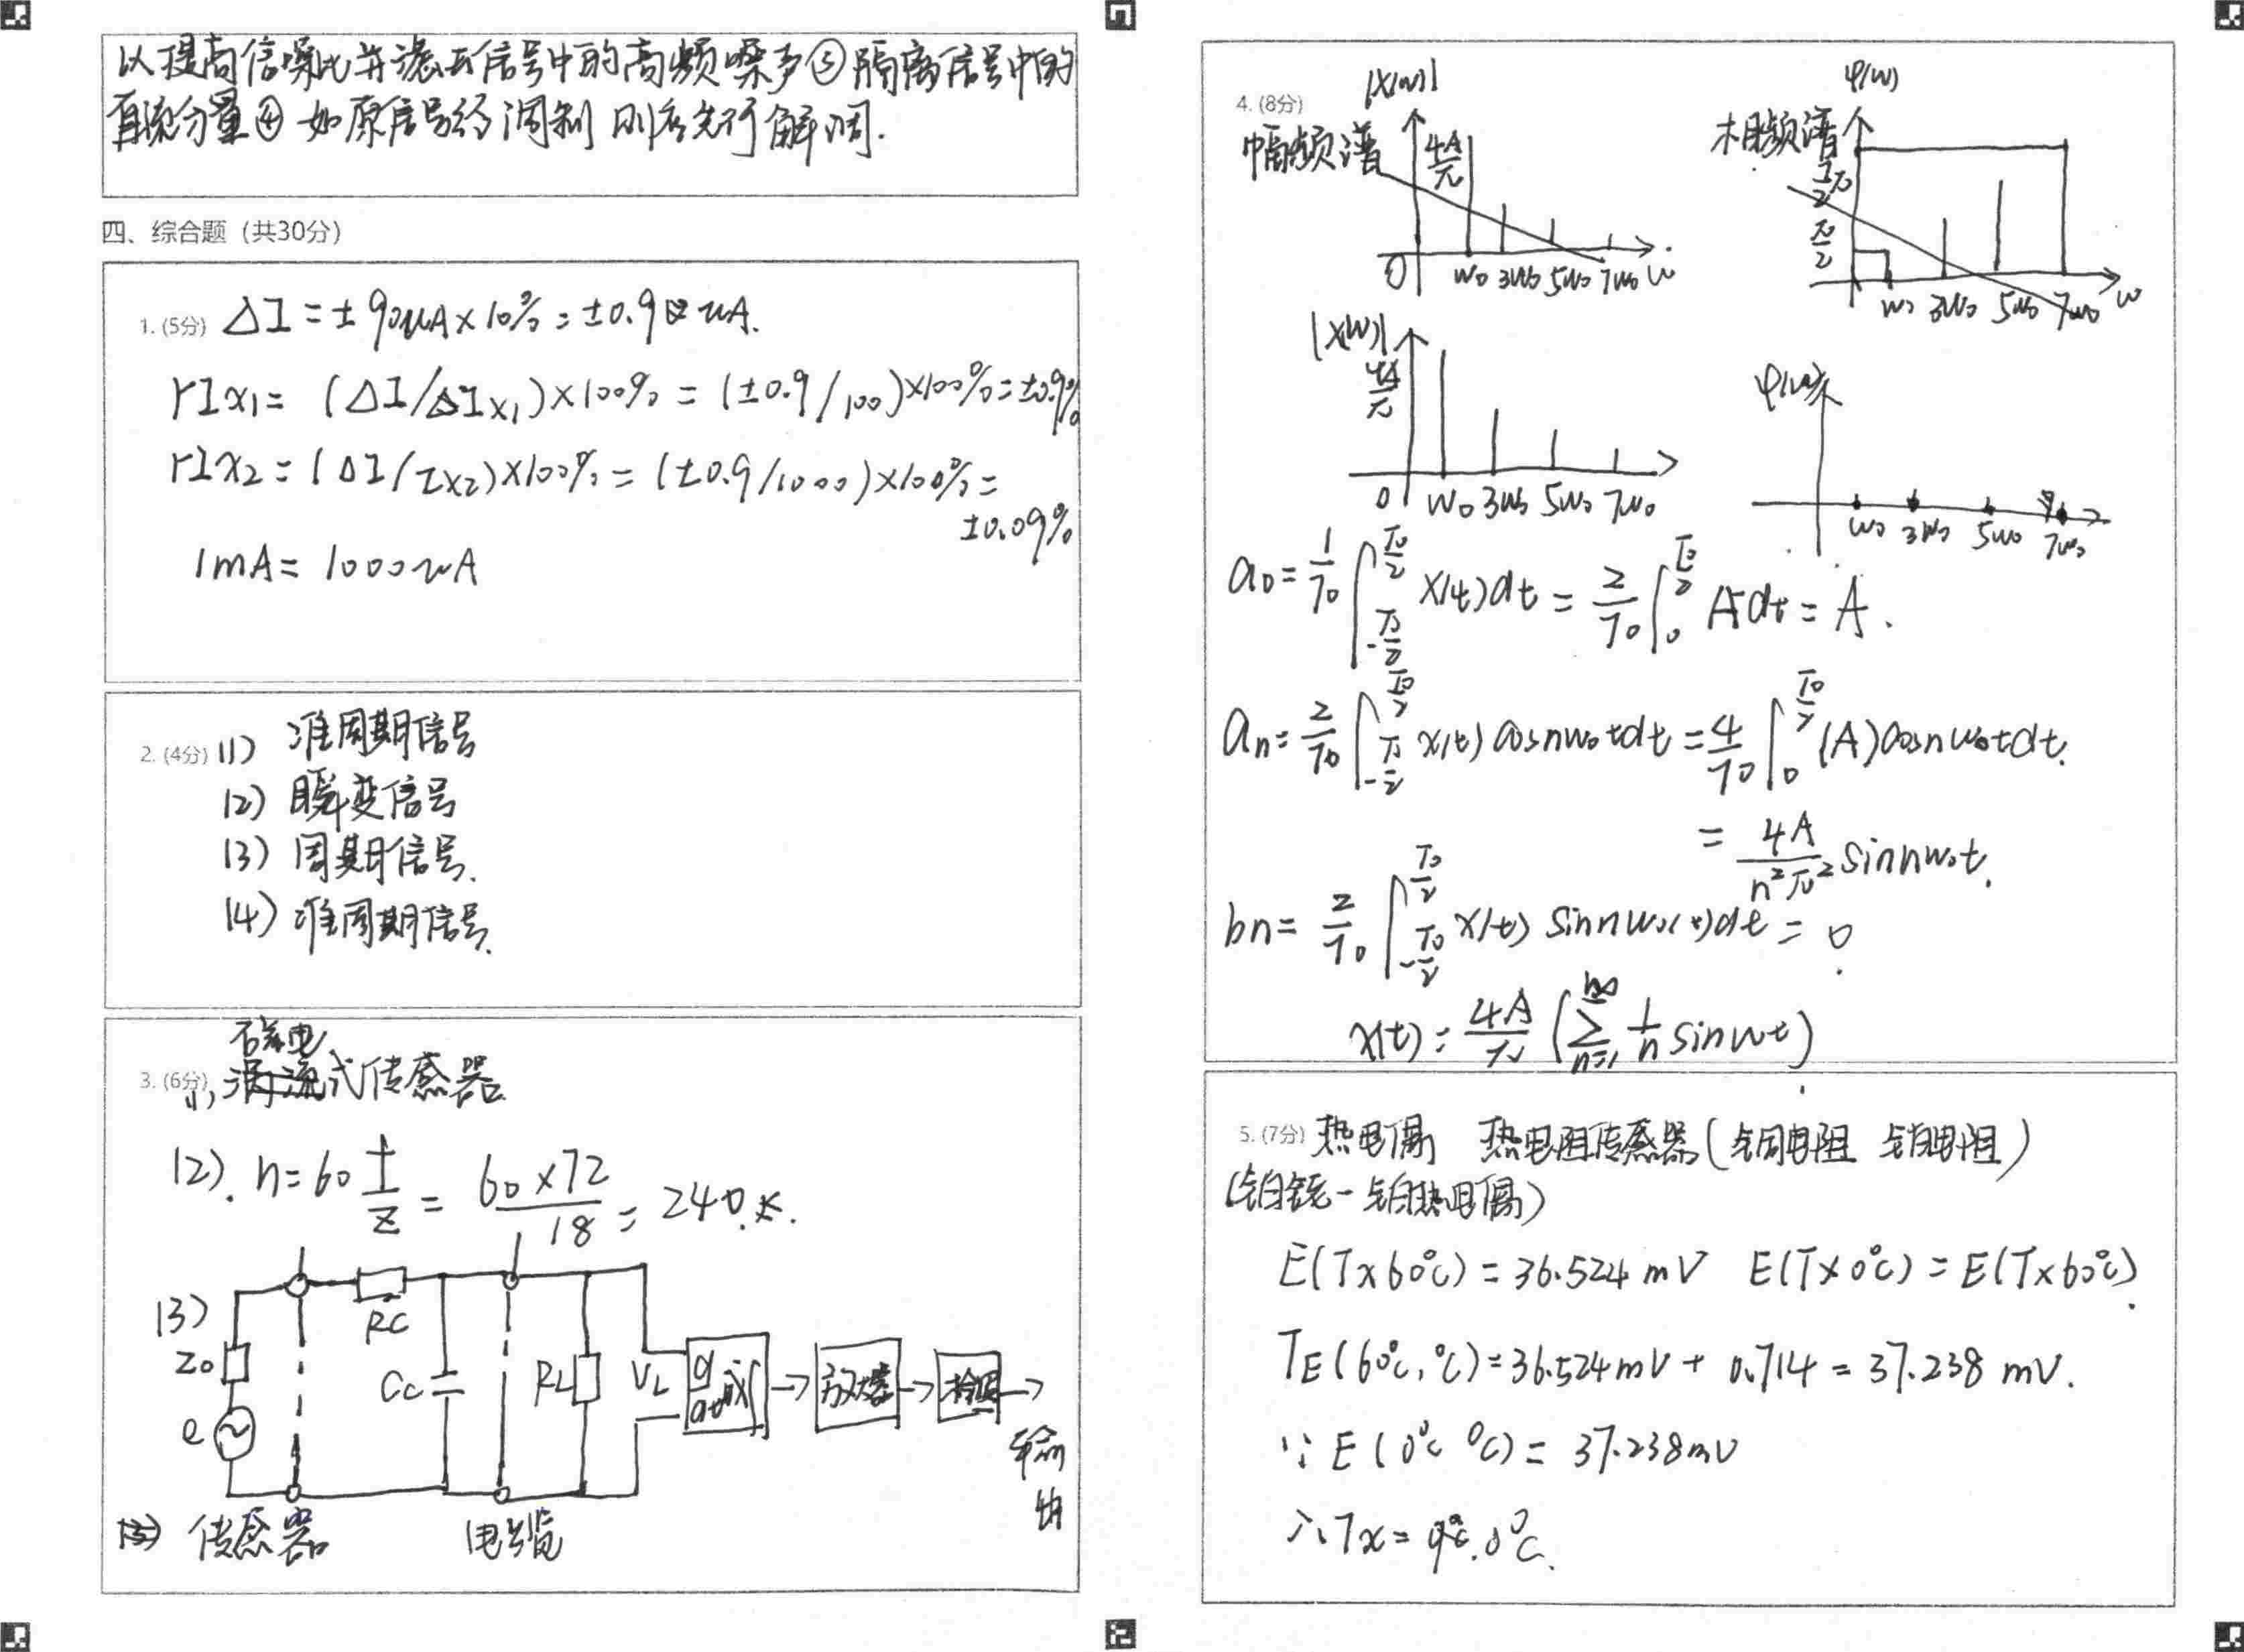 以提高信噪比并滤去信号中的高频噪声③隔离信号中的
直流分量④如原信号经调制 则应先行解调.
四、综合题（共30分）
1. (5分) ΔI = ± 90uA × 10% = ±0.9 uA.
rIx₁ = (ΔI/Ix₁)×100% = (±0.9/100)×100% = ±0.9%
rIx₂ = (ΔI/Ix₂)×100% = (±0.9/1000)×100% =
±0.09%
1mA = 1000uA
2. (4分) (1) 准周期信号
(2) 瞬变信号
(3) 周期信号.
(4) 准周期信号.
磁电
3. (6分) (1) 涡流式传感器
(2). n = 60 f/z = 60×72/18 = 240.
(3)
Z₀
e
Rc
Cc
RL
VL
d/dt
放大器
检测
输出
传感器
电缆
4. (8分)
|X(w)|
幅频谱
4A/π
0 w₀ 3w₀ 5w₀ 7w₀ w
φ(w)
相频谱
π/2
w₀ 3w₀ 5w₀ 7w₀ w
|X(w)|
4A/π
0 w₀ 3w₀ 5w₀ 7w₀
φ(w)
w₀ 3w₀ 5w₀ 7w₀
a₀ = 1/T₀ ∫_{-T₀/2}^{T₀/2} x(t)dt = 2/T₀ ∫_0^{T₀/2} A dt = A.
aₙ = 2/T₀ ∫_{-T₀/2}^{T₀/2} x(t) cosnw₀tdt = 4/T₀ ∫_0^{T₀/2} (A) cosnw₀tdt.
= 4A/n²π² sinnw₀t.
bn = 2/T₀ ∫_{-T₀/2}^{T₀/2} x(t) sinnw₀(t)dt = 0.
x(t) = 4A/π (∑_{n=1}^{∞} 1/n sinwt)
5. (7分) 热电偶 热电阻传感器(铜电阻 铂电阻)
(铂铑-铂热电偶)
E(Tx60°C) = 36.524mV E(Tx0°C) = E(Tx60°C).
TE(60°C, °C) = 36.524mV + 0.714 = 37.238 mV.
∵ E(0°C 0°C) = 37.238mV
∴ Tx =